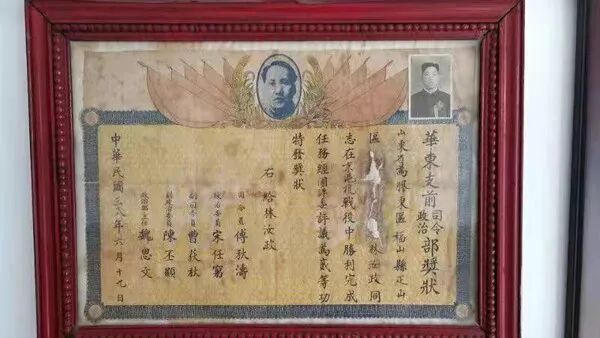 華東支前司令政治部獎狀
山東省膠東區福山縣山
區林汝政同
志在滬杭戰役中勝利完成
任務經團評委評議為貳等功
特發獎狀
右給林汝政
司令員 傅秋濤
政治委員 宋任窮
副司令員 曹荻秋
副政治委員 陳丕顯
政治部主任 魏思文
中華民國三八年六月十九日